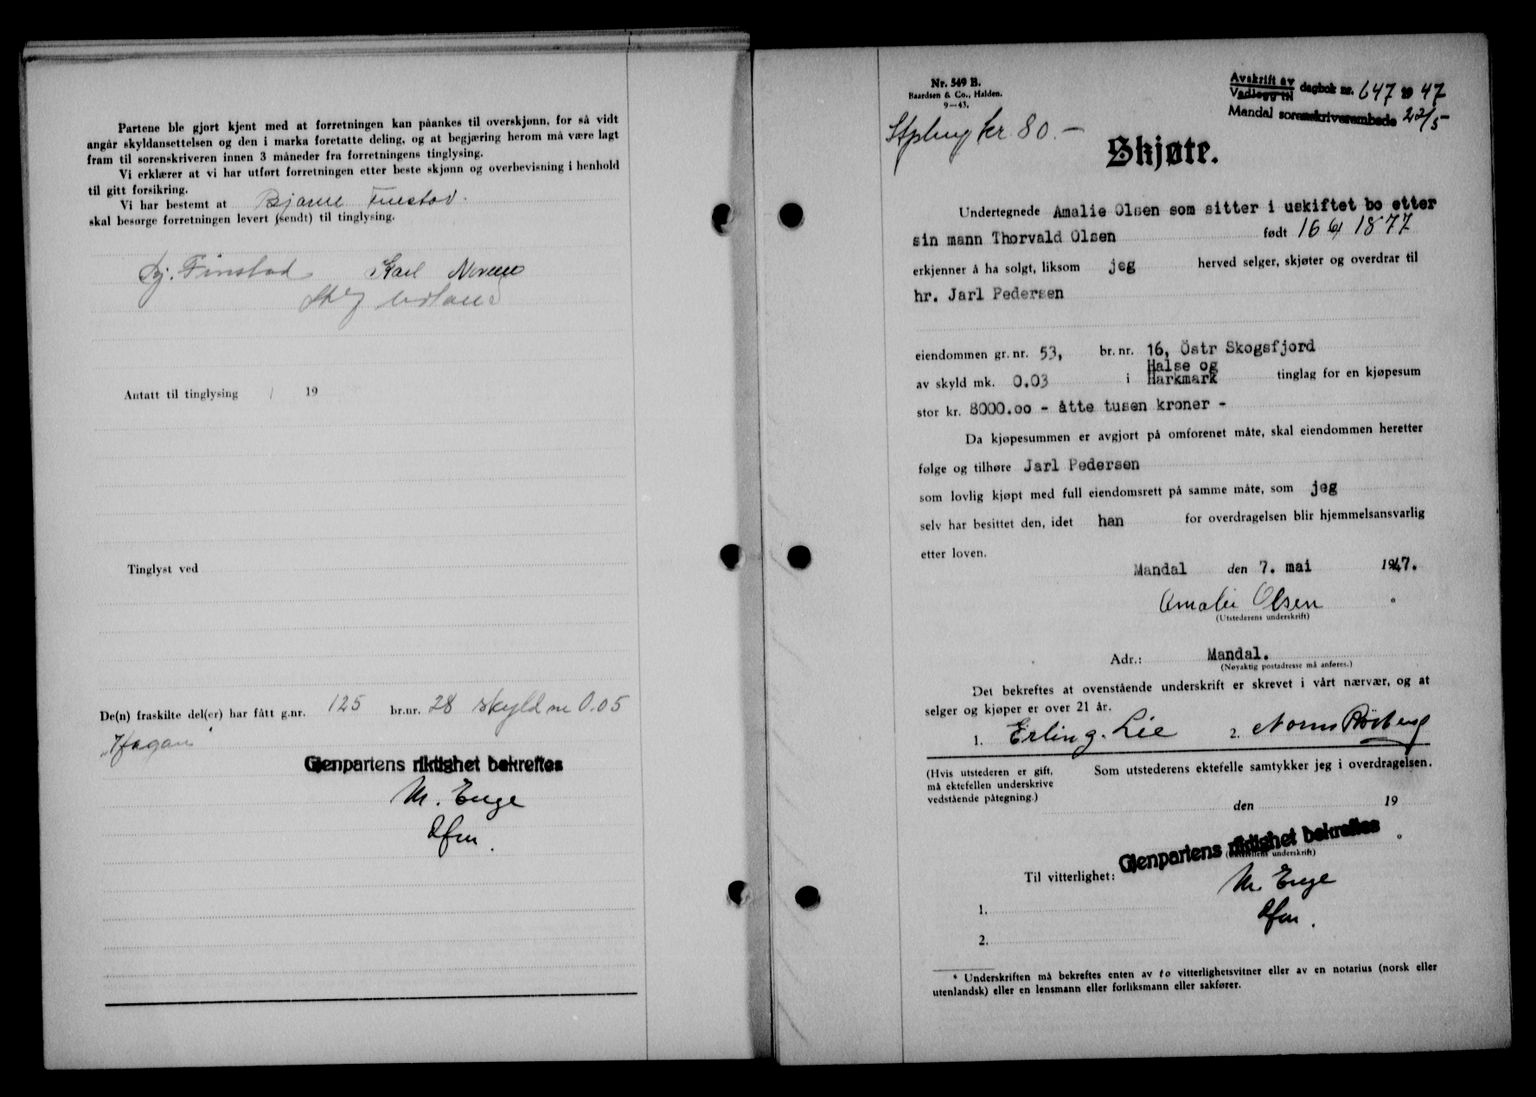 Partene ble gjort kjent med at forretningen kan påankes til overskjønn, for så vidt
angår skyldansettelsen og den i marka foretatte deling, og at begjæring herom må være lagt
fram til sorenskriveren innen 3 måneder fra forretningens tinglysing.
Vi erklærer at vi har utført forretningen etter beste skjønn og overbevisning i henhold
til gitt forsikring.
Vi har bestemt at Bjarne Finstad
skal besørge forretningen levert (sendt) til tinglysing.
Bj. Finstad Karl
Antatt til tinglysing / 19
Tinglyst ved
De(n) fraskilte del(er) har fått g.nr. 125 br.nr. 28 skyld m 0.05
"Hagan"
Gjenpartens riktighet bekreftes
M. Enge
Nr. 549 B.
Baardsen & Co., Halden.
9—43.
Avskrift av
Vedlegg til dagbok nr. 647 19 47
Mandal sorenskriverembede 22/5
Stpling kr 80.-
Skjøte.
Undertegnede Amalie Olsen som sitter i uskiftet bo etter
sin mann Thorvald Olsen født 16 1877
erkjenner å ha solgt, liksom jeg herved selger, skjøter og overdrar til
hr. Jarl Pedersen
eiendommen gr. nr. 53, br. nr. 16, Östr Skogsfjord
av skyld mk. 0.03 i Halse og Harkmark tinglag for en kjøpesum
stor kr. 8000.oo - åtte tusen kroner -
Da kjøpesummen er avgjort på omforenet måte, skal eiendommen heretter
følge og tilhøre Jarl Pedersen
som lovlig kjøpt med full eiendomsrett på samme måte, som jeg
selv har besittet den, idet han for overdragelsen blir hjemmelsansvarlig
etter loven.
Mandal den 7. mai 1947.
Amalie Olsen *
(Utstederens underskrift)
Adr.: Mandal.
(Nøyaktig postadresse må anføres.)
Det bekreftes at ovenstående underskrift er skrevet i vårt nærvær, og at
selger og kjøper er over 21 år.
1. Erling Lie 2.
(Hvis utstederen er gift,
må ektefellen underskrive
vedstående påtegning.)
Som utstederens ektefelle samtykker jeg i overdragelsen.
den 19
*
Gjenpartens riktighet bekreftes
(Ektefellens underskrift)
Til vitterlighet:
M. Enge
1.
2.
* Underskriften må bekreftes enten av to vitterlighetsvitner eller av en notarius (norsk eller
utenlandsk) eller en lensmann eller forliksmann eller sakfører.